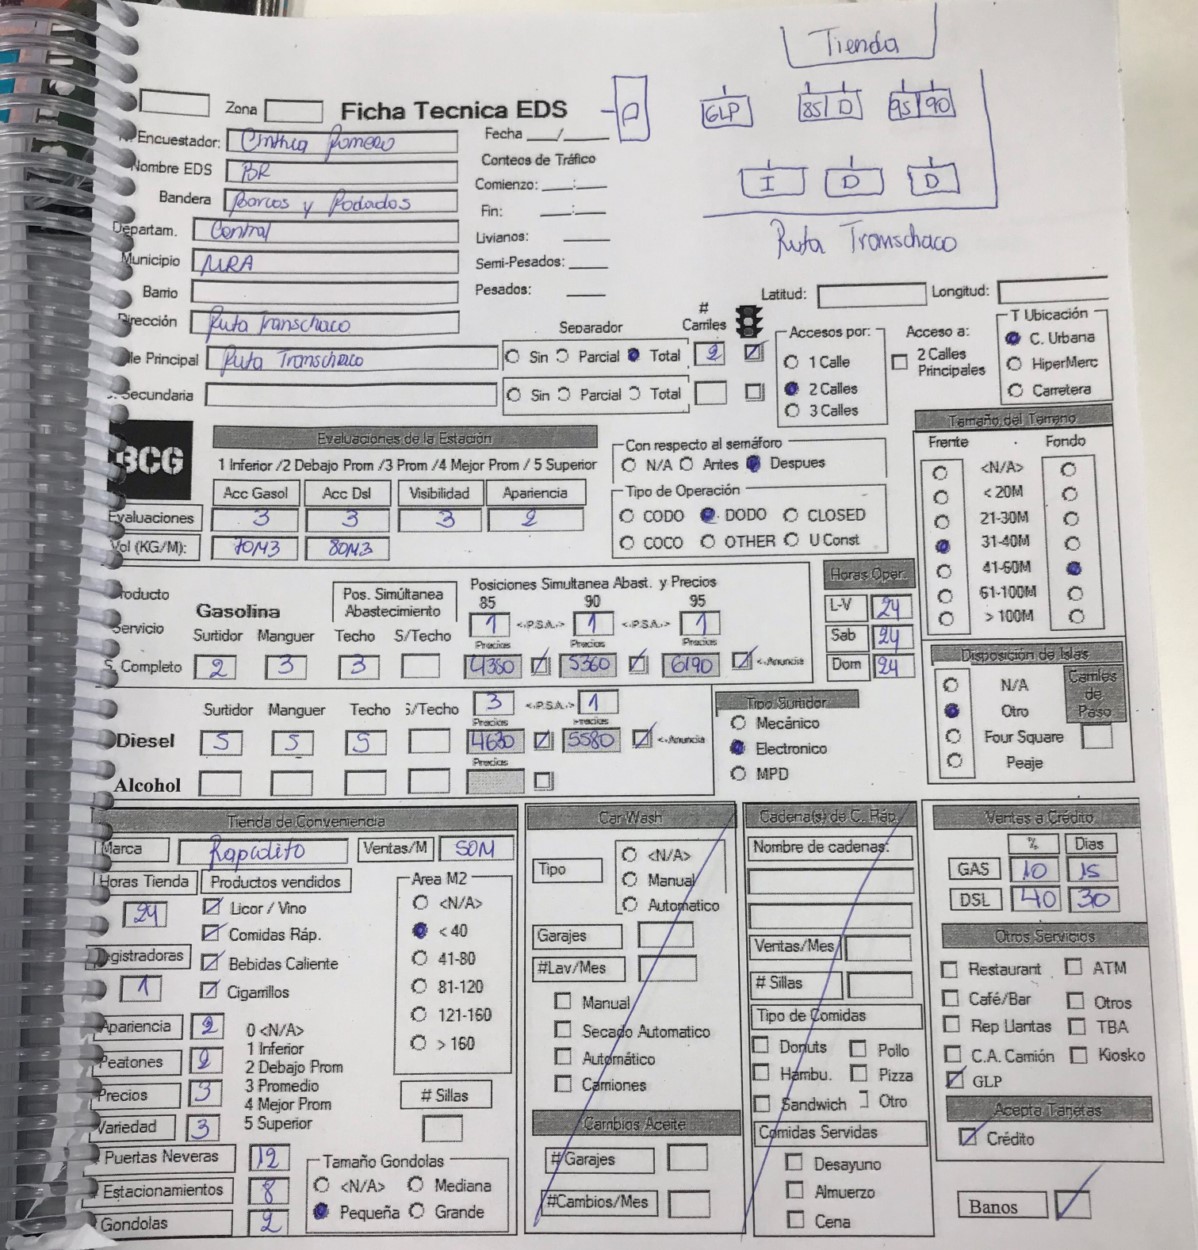 Tienda
Zona
Ficha Tecnica EDS
A GLP 85 D 95 90
Encuestador: Cinthia Romero
Fecha __/__
Nombre EDS BR
Conteos de Tráfico
I D D
Bandera Barcos y Rodados
Comienzo: __:__
Departam. Central
Fin: __:__
Ruta Transchaco
Municipio MRA
Livianos:
Semi-Pesados:
Barrio
Pesados:
Latitud: Longitud:
Dirección Ruta Transchaco
Separador # Carriles
Accesos por: Acceso a: T Ubicación
Principal Ruta Transchaco
Sin Parcial Total 2
1 Calle 2 Calles Principales C. Urbana
2 Calles HiperMerc
Secundaria
Sin Parcial Total
3 Calles Carretera
BCG
Evaluaciones de la Estación
Con respecto al semáforo
Tamaño del Terreno
1 Inferior /2 Debajo Prom /3 Prom /4 Mejor Prom / 5 Superior
N/A Antes Despues
Frente Fondo
Acc Gasol Acc Dsl Visibilidad Apariencia
Tipo de Operación
<N/A>
Evaluaciones 3 3 3 2
CODO DODO CLOSED
< 20M
Vol (KG/M): 70M3 80M3
COCO OTHER U Const
21-30M
31-40M
41-60M
61-100M
> 100M
Producto Gasolina
Pos. Simúltanea Abastecimiento
Posiciones Simultanea Abast. y Precios
Horas Oper.
85 90 95
L-V 24
Servicio Surtidor Manguer Techo S/Techo
1 <.P.S.A.> 1 <.P.S.A.> 1
Sab 24
Precios Precios Precios
S. Completo 2 3 3 4360 5360 6190 <-Anuncia
Dom 24
Disposición de Islas
Surtidor Manguer Techo S/Techo
3 <.P.S.A.> 1
Tipo Surtidor
N/A Carriles de Paso
Precios Precios
Mecánico
Otro
Diesel 5 5 5 4630 5580 <-Anuncia
Electronico
Four Square
Precios
Alcohol
MPD
Peaje
Tienda de Conveniencia
Car Wash
Cadena(s) de C. Ráp.
Ventas a Crédito
Marca Rapidito Ventas/M 50M
Tipo
<N/A>
Manual
Automatico
Nombre de cadenas:
% Dias
Horas Tienda Productos vendidos
Area M2
GAS 10 15
24
Licor / Vino
<N/A>
DSL 40 30
Comidas Ráp.
< 40
Garajes
Otros Servicios
Registradoras
Bebidas Caliente
41-80
#Lav/Mes
Ventas/Mes
Restaurant ATM
1
Cigarrillos
81-120
Manual
# Sillas
Café/Bar Otros
Apariencia 2
0 <N/A>
121-160
Secado Automatico
Tipo de Comidas
Rep Llantas TBA
1 Inferior
> 160
Automático
Donuts Pollo
C.A. Camión Kiosko
Peatones 2
2 Debajo Prom
Camiones
Hambu. Pizza
GLP
Precios 3
3 Promedio
# Sillas
Sandwich Otro
Acepta Tarjetas
4 Mejor Prom
Cambios Aceite
Comidas Servidas
Crédito
Variedad 3
5 Superior
Puertas Neveras 12
Tamaño Gondolas
# Garajes
Desayuno
Estacionamientos 8
<N/A> Mediana
#Cambios/Mes
Almuerzo
Banos
Gondolas 2
Pequeña Grande
Cena